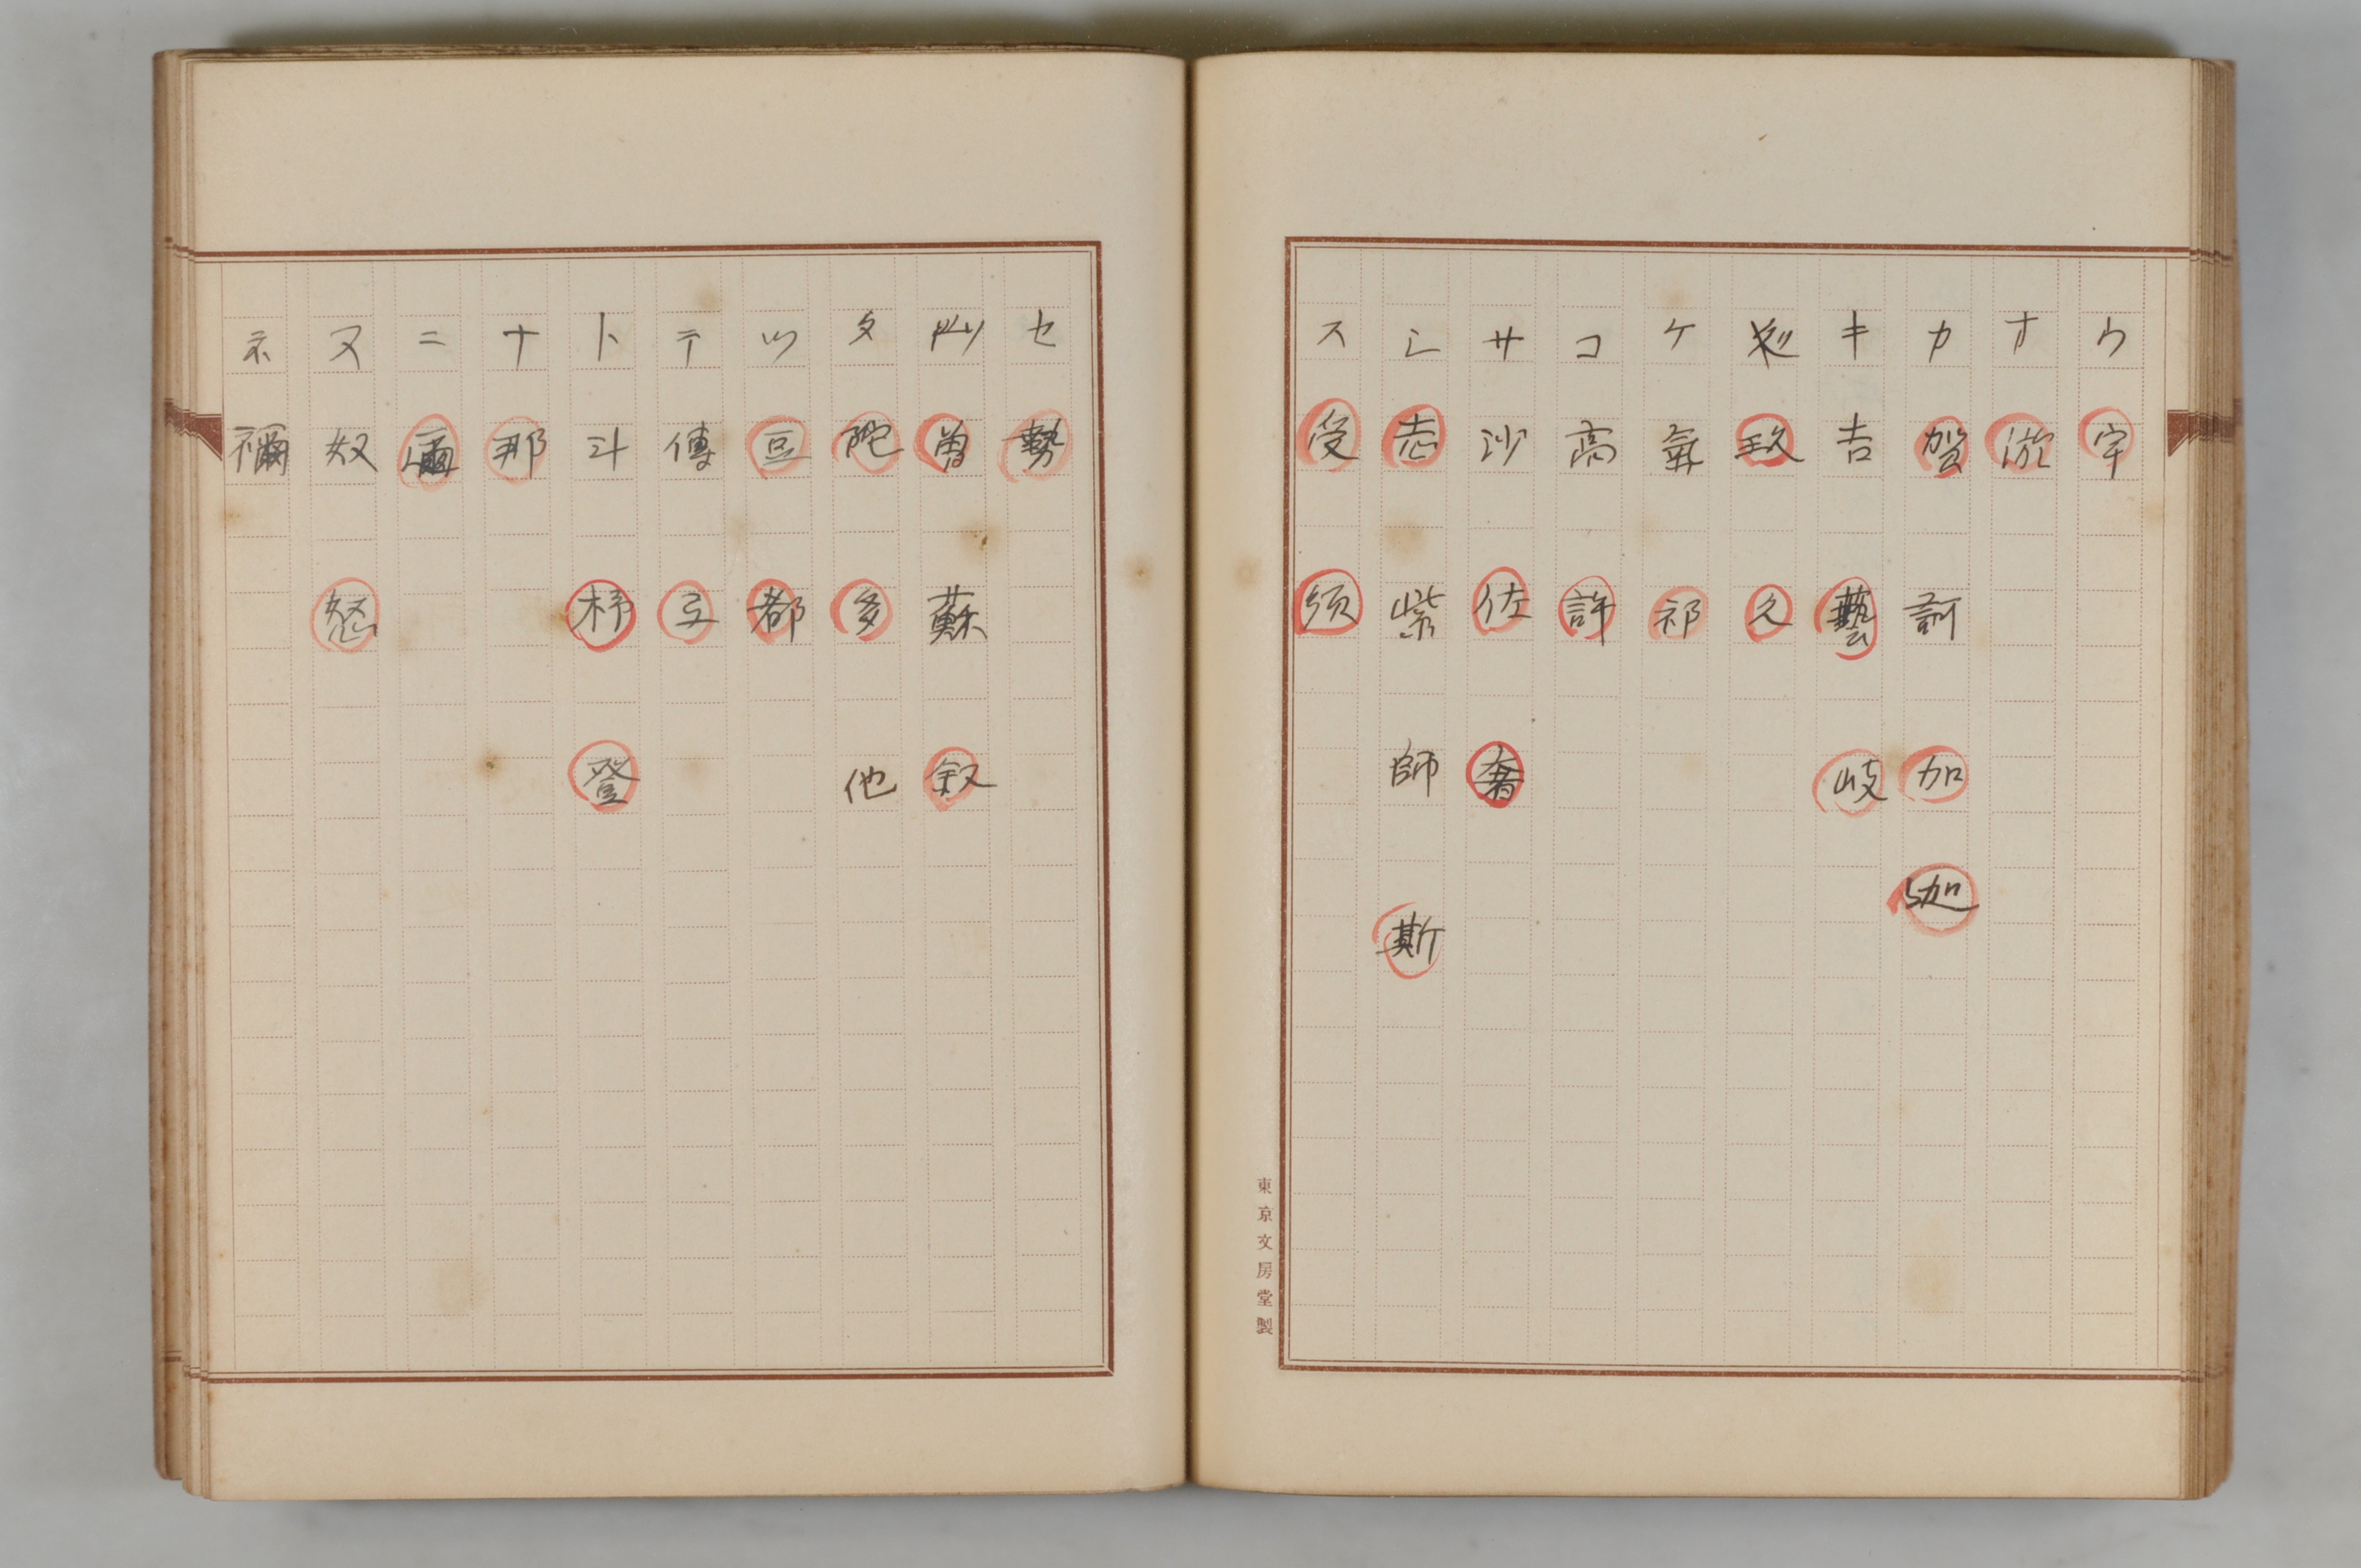 ウ 宇
オ 淤
カ 賀 訶 加 迦
キ 吉 藝 岐
玖 久
ケ 氣 祁
コ 高 許
サ 沙 佐 奢
シ 志 紫 師 斯
ス 受 須
東京文房堂製
セ 勢
曽 蘇 叙
タ 陀 多 他
ツ 豆 都
テ 傳 弖
ト 斗 杼 登
ナ 那
ニ 邇
ヌ 奴 怒
ネ 禰